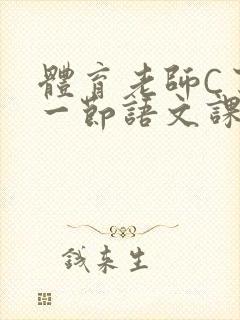 體育老師C
一節語文課
錢来生